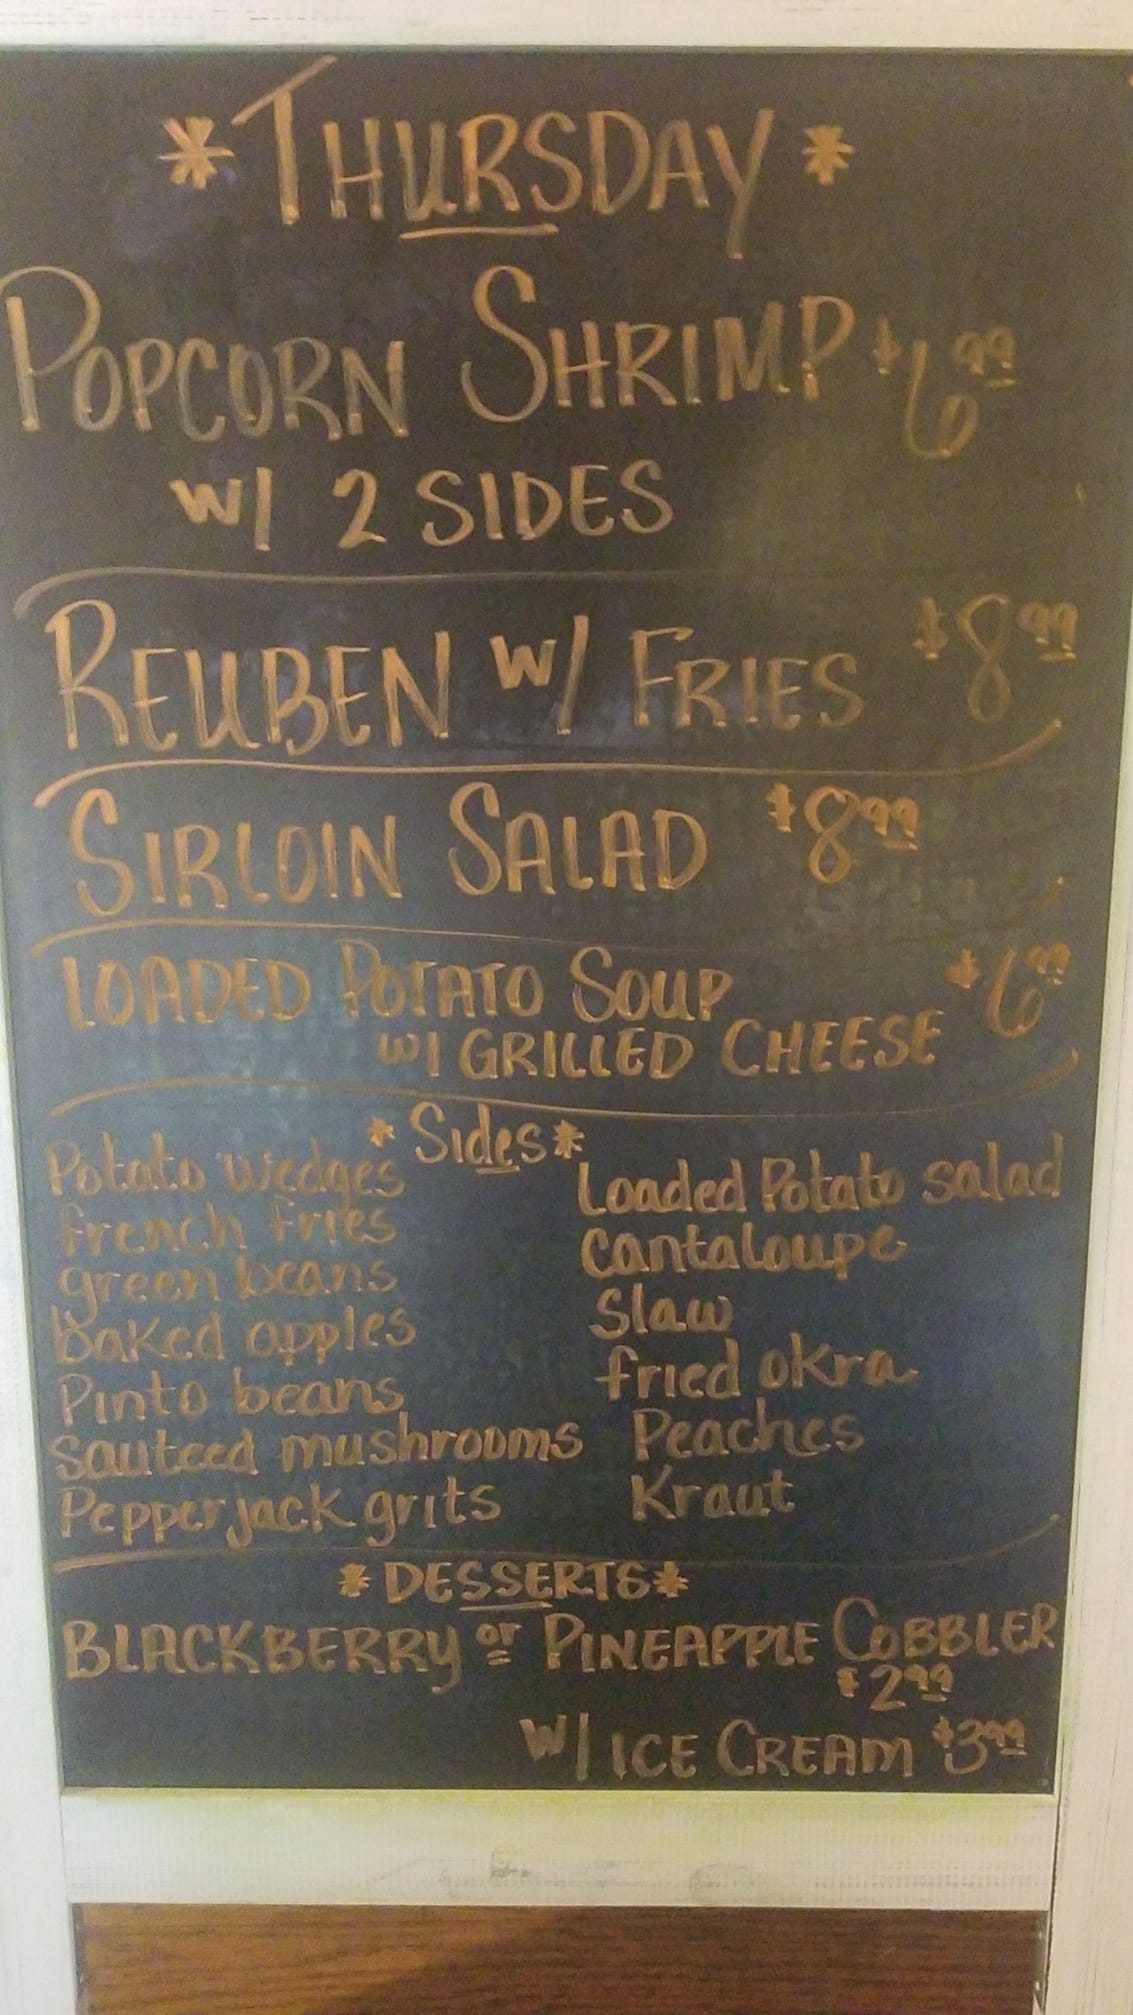 *THURSDAY*
POPCORN SHRIMP $6.99
W/ 2 SIDES
REUBEN W/ FRIES $8.99
SIRLOIN SALAD $8.99
LOADED POTATO SOUP
W/ GRILLED CHEESE $6.99
*Sides*
Potato wedges
french fries
green beans
baked apples
Pinto beans
Sauteed mushrooms
Pepperjack grits
Loaded Potato salad
Cantaloupe
Slaw
fried okra
Peaches
Kraut
*DESSERTS*
BLACKBERRY or PINEAPPLE COBBLER
$2.99
W/ ICE CREAM $3.99